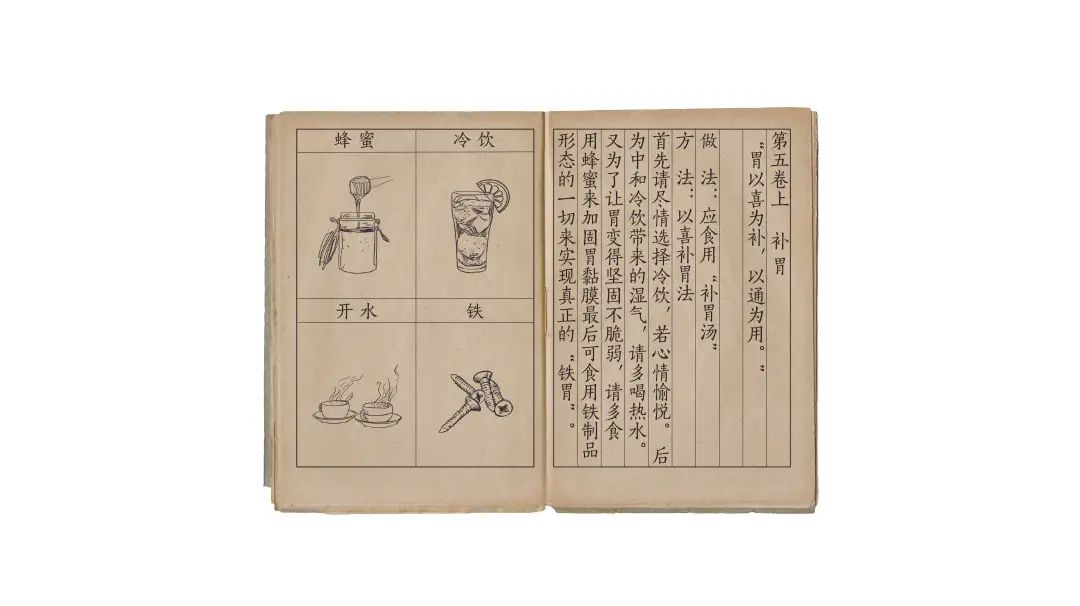 第五卷上 补胃
“胃以喜为补，以通为用。”
做 法：应食用“补胃汤”
方 法：以喜补胃法
首先请尽情选择冷饮，若心情愉悦。后
为中和冷饮带来的湿气，请多喝热水。
又为了让胃变得坚固不脆弱，请多食
用蜂蜜来加固胃黏膜最后可食用铁制品
形态的一切来实现真正的“铁胃”。
冷饮
蜂蜜
铁
开水